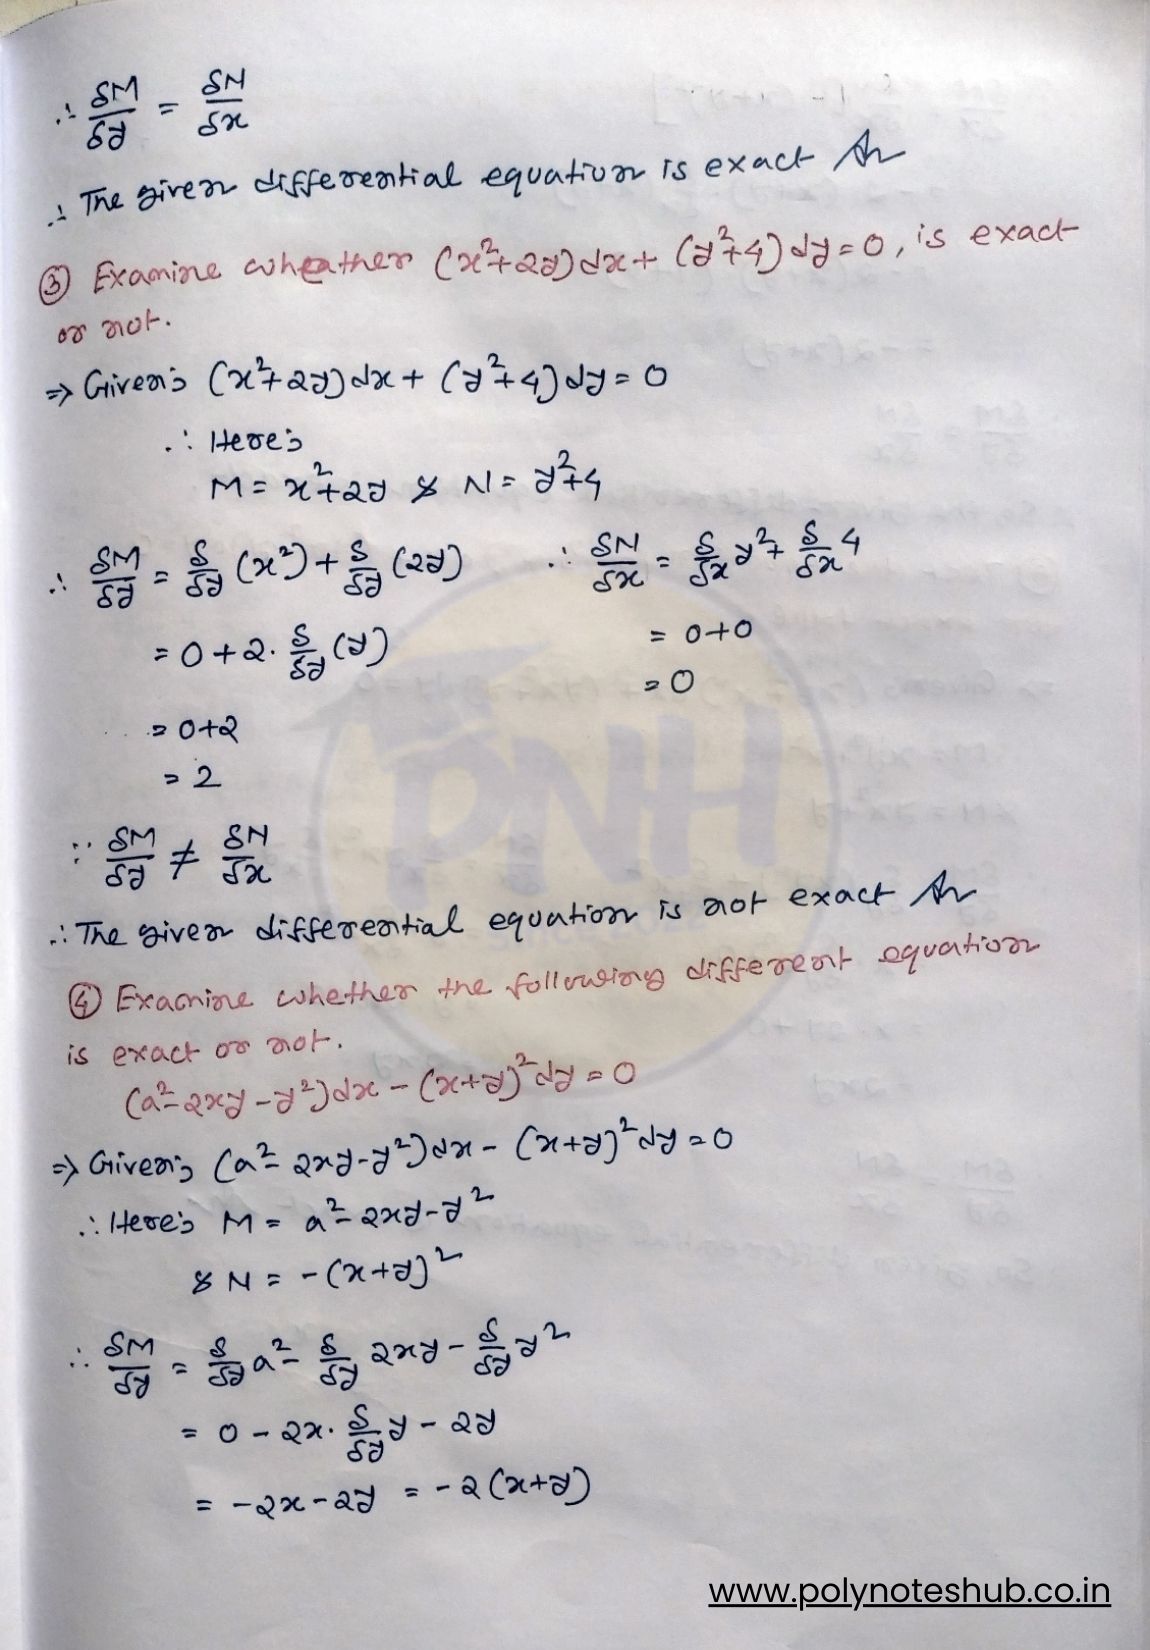 ∴ δM/δy = δN/δx
∴ The given differential equation is exact
③ Examine wheather (x²+2y)dx + (y²+4)dy = 0, is exact
or not.
⇒ Given: (x²+2y)dx + (y²+4)dy = 0
∴ Here:
M = x²+2y & N = y²+4
∴ δM/δy = δ/δy (x²) + δ/δy (2y) ∴ δN/δx = δ/δx y² + δ/δx 4
= 0 + 2. δ/δy (y) = 0+0
= 0
= 0+2
= 2
∵ δM/δy ≠ δN/δx
∴ The given differential equation is not exact
④ Examine whether the following different equation
is exact or not.
(a²-2xy-y²)dx - (x+y)²dy = 0
⇒ Given: (a²-2xy-y²)dx - (x+y)²dy = 0
∴ Here: M = a²-2xy-y²
& N = -(x+y)²
∴ δM/δy = δ/δy a² - δ/δy 2xy - δ/δy y²
= 0 - 2x. δ/δy y - 2y
= -2x-2y = -2(x+y)
PNH
www.polynoteshub.co.in